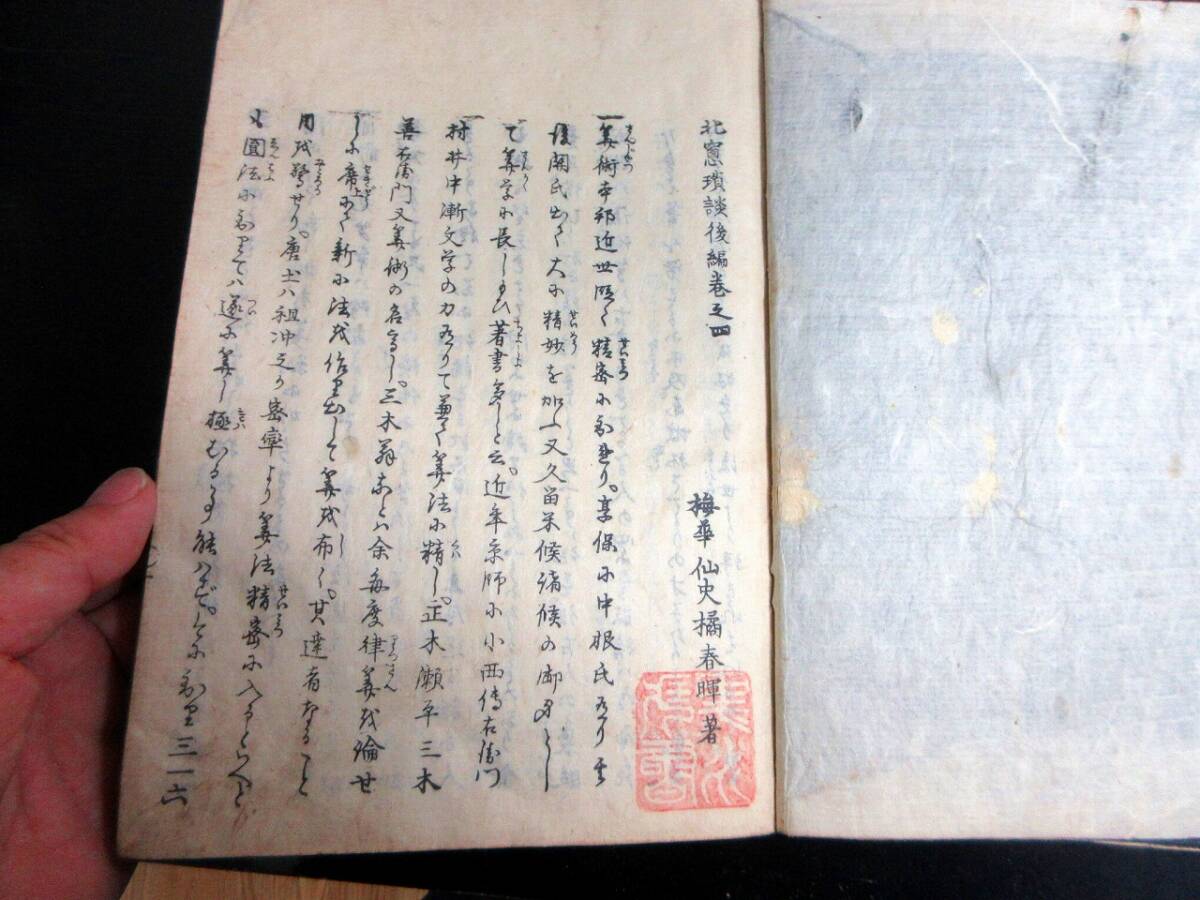 北窓瑣談後編巻之四
梅華仙史橘春暉著
一算術本邦近世暦く精密に到れり。享保に中根氏ありて其
後関氏出て大に精妙を加ふ又久留米候諸侯の御身とし
て算学に長じ給ひ著書多しと云。近年京師に小西傳右衛門
村井中漸文学の力ありて兼て算法に精し。正木瀬平三木
善右衛門又算術の名高し。三木翁などハ余毎度律算を論せ
しに席上にて新に法を作り出して算を布く。其達者なること
目を驚せり。唐土ハ祖冲之が密率より算法精密に入るといへど
も圓法に到りてハ遂に算し極むる事能ハず。こゝに到り三一六